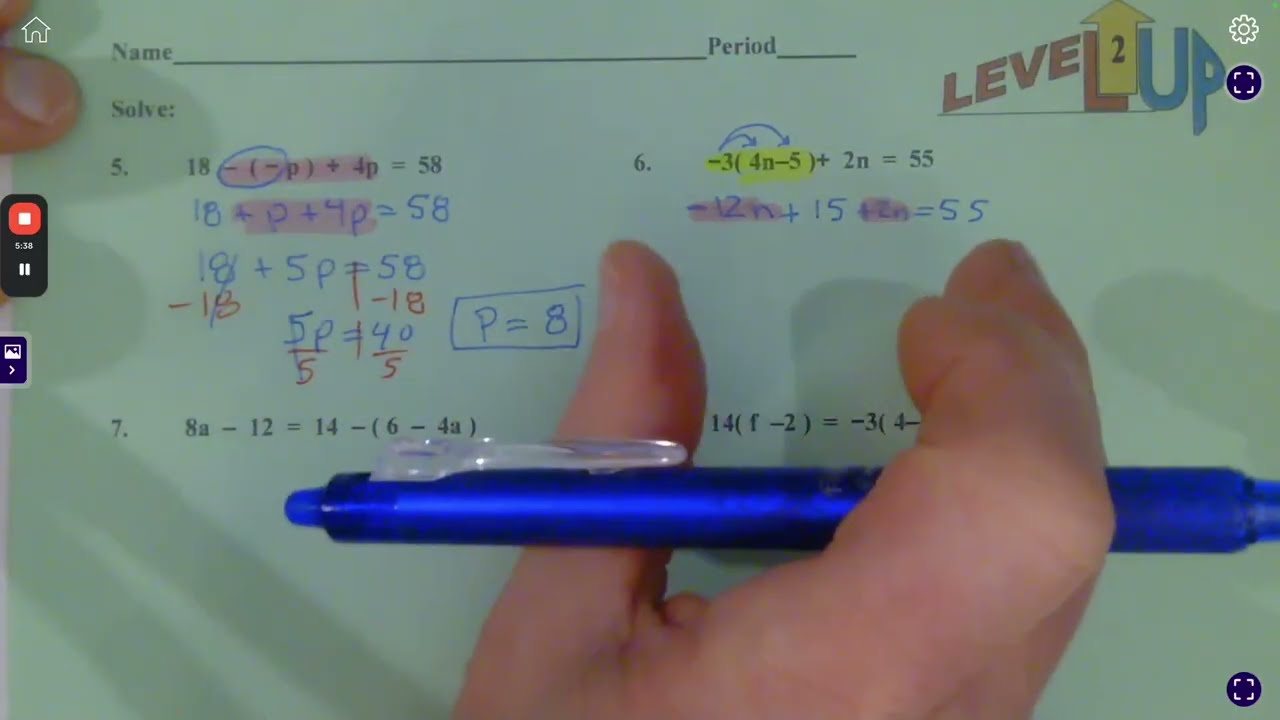 Name Period
LEVEL UP 2
Solve:
5. 18 - (-p) + 4p = 58
18 + p + 4p = 58
18 + 5p = 58
-18 -18
5p = 40
5 5
p = 8
6. -3( 4n-5 )+ 2n = 55
-12n + 15 + 2n = 55
7. 8a - 12 = 14 -( 6 - 4a )
14( f -2 ) = -3( 4-
5:38